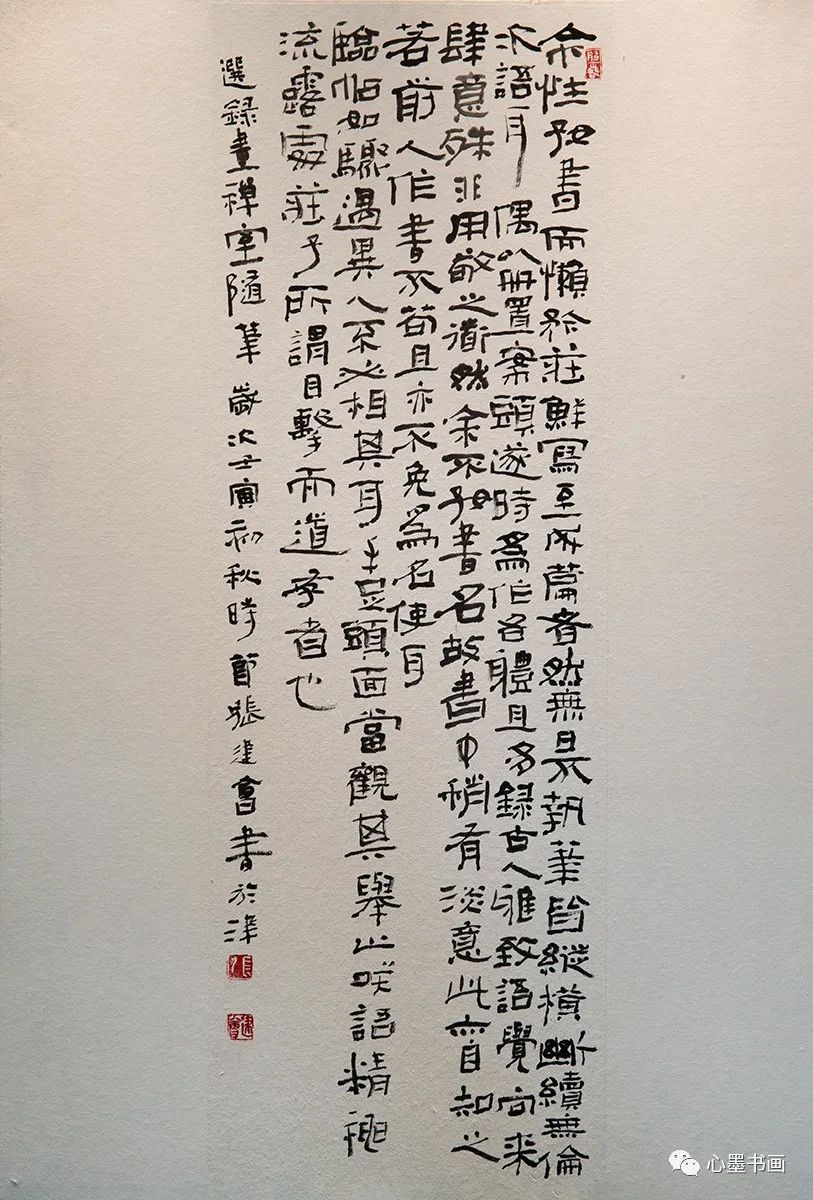 余性好書而懶矜莊鮮寫至成篇者然無日不執筆皆縱橫斷續無倫
次語耳偶以冊置案頭遂時為作各體且多録古人雅致語覺向来
肆意殊非用敬之道然余不好書名故書中稍有淡意此亦自知之
若前人作書不苟且亦不免為名使耳
臨帖如驟遇異人不必相其耳手足頭面當觀其舉止咲語精神
流露處莊子所謂目擊而道存者也
選録畫禪室隨筆歲次壬寅初秋時節張建會書於津
建會
心墨书画